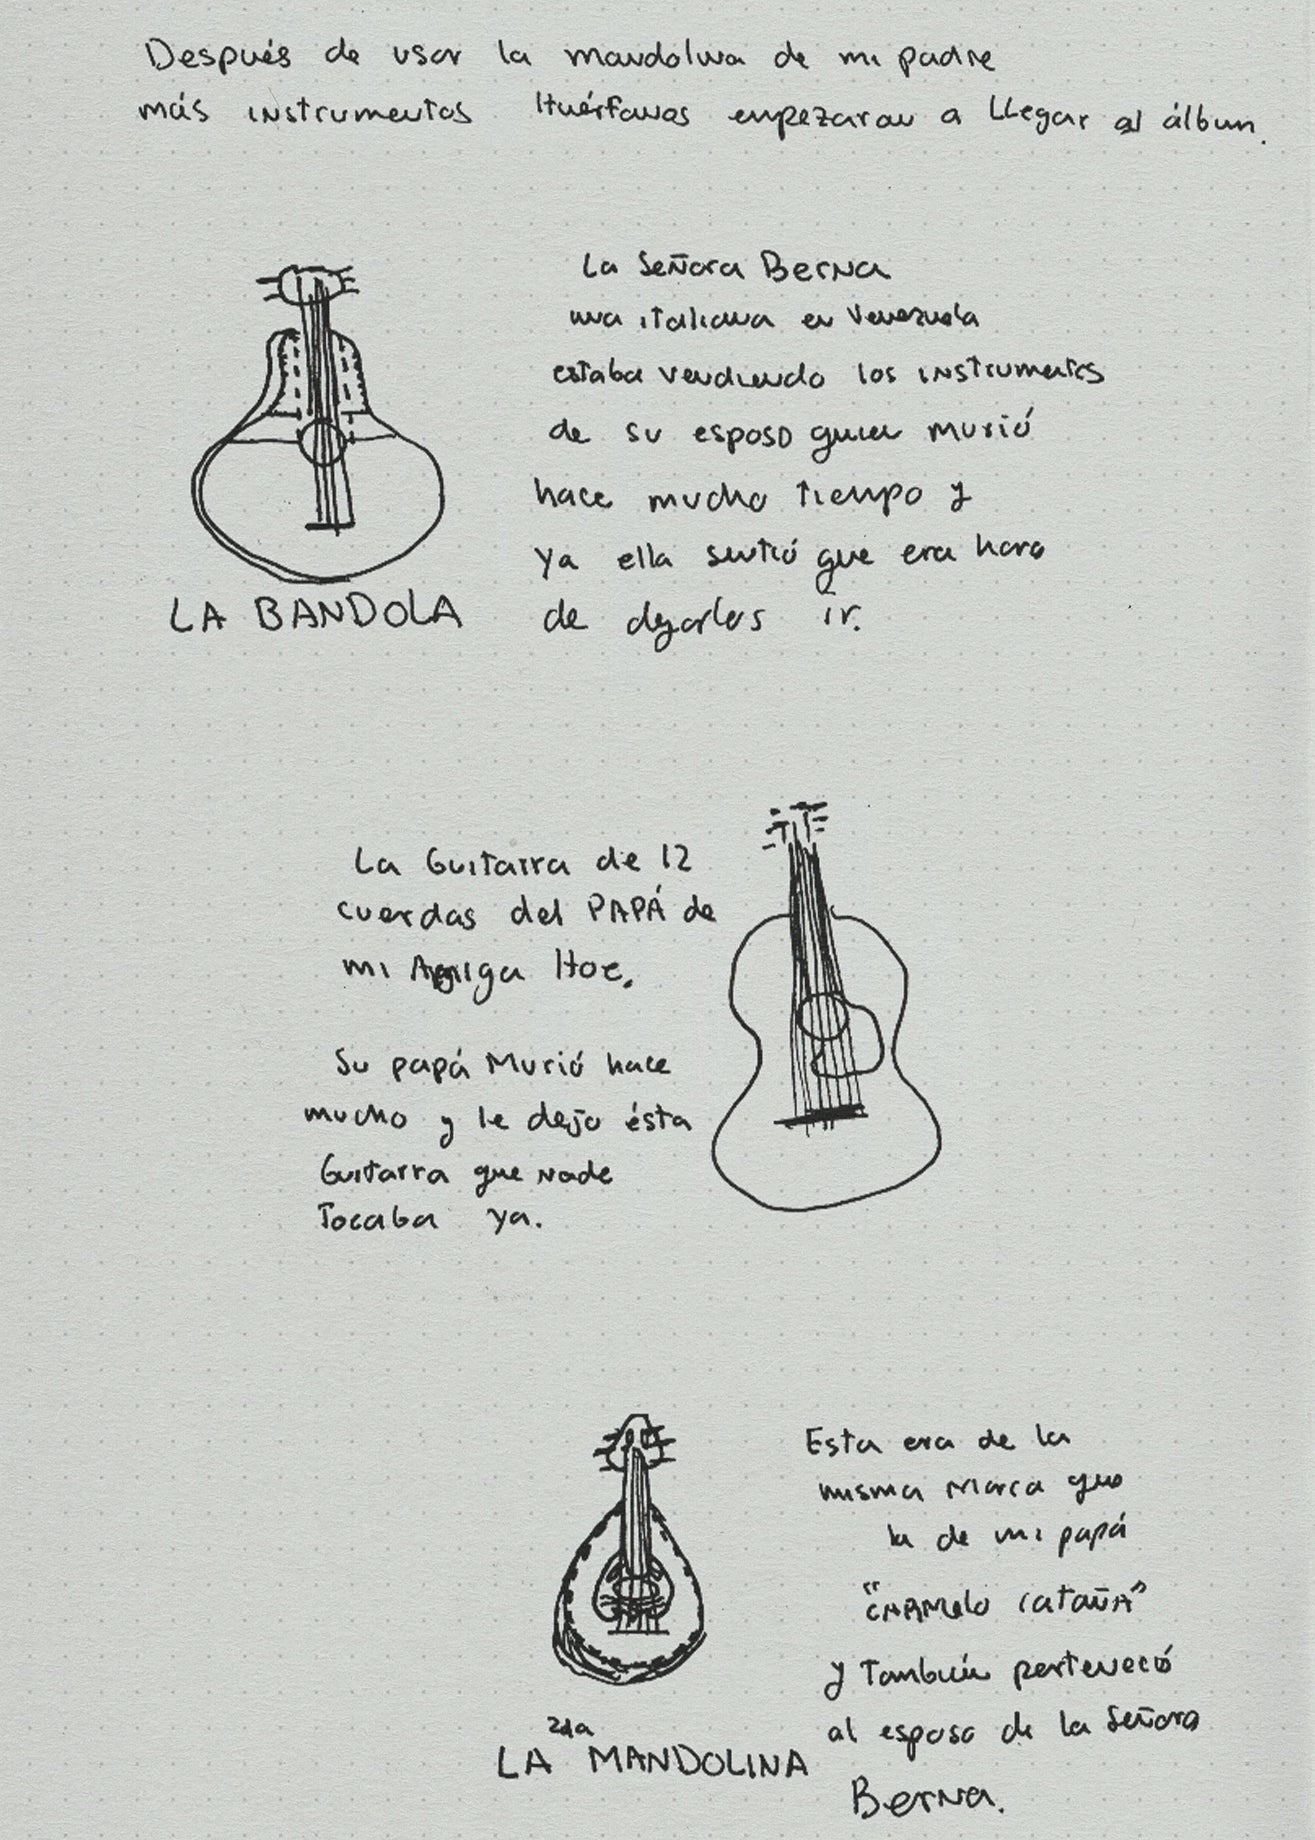 Después de usar la mandolina de mi padre
más instrumentos Huérfanos empezaron a Llegar al álbum.
La Señora Berna
una italiana en Venezuela
estaba vendiendo los instrumentos
de su esposo quien murió
hace mucho tiempo y
ya ella sintió que era hora
de dejarlos ir.
LA BANDOLA
La Guitarra de 12
cuerdas del PAPÁ de
mi Amiga
Su papá Murió hace
mucho y le dejo ésta
Guitarra que nade
Tocaba ya.
Esta era de la
misma Marca que
la de mi papá
"CARMelo CataÑA"
y También perteneció
al esposo de la Señora
Berna.
LA 2da MANDOLINA